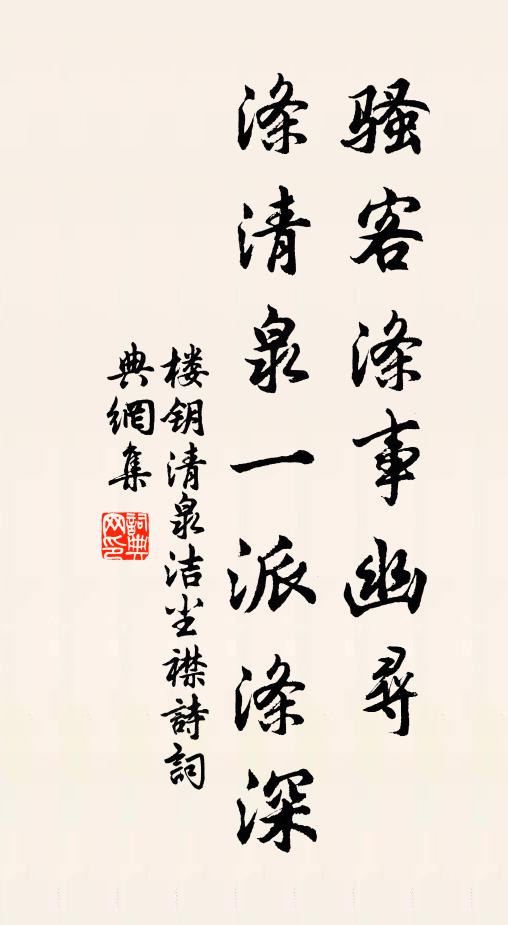 骚客涤事幽寻
涤清泉一派涤深
楼钥清泉洁尘襟詩詞
典網集
詞典網印